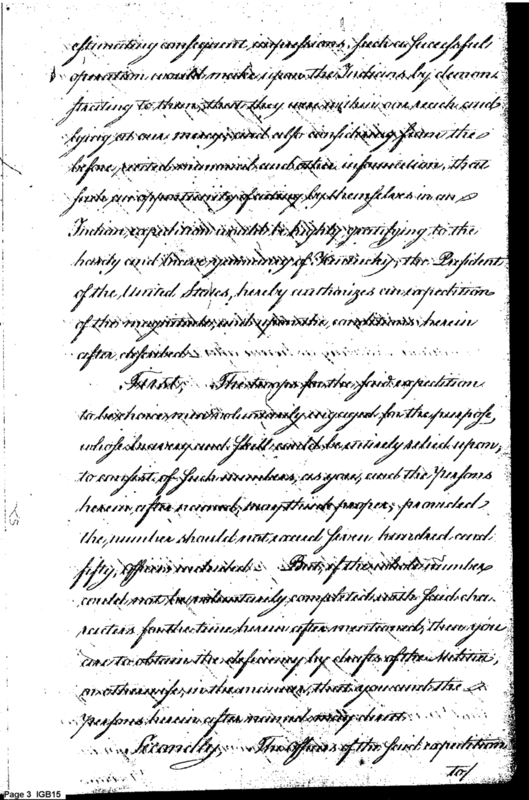 estimating consequent impressions, such a successful
operation would make upon the Indians by demon
strating to them, that they were within our reach, and
lying at our mercy; and also considering from the
before recited memorial, and other information, that
such an opportunity of acting by themselves in an
Indian expedition would be highly gratifying to the
hardy and brave yeomanry of Kentucky, the President
of the United States, hereby authorizes an expedition
of the magnitude, and upon the conditions herein
after described.
First, The troops for the said expedition
to be chosen men voluntarily engaged for the purpose,
whose bravery and skill could be entirely relied upon,
to consist of such numbers, as you, and the Persons
herein after named, may think proper; provided
the number should not exceed seven hundred and
fifty, officers included. But, if the whole number
could not be voluntarily completed with said cha
racters for the time herein after mentioned, then you
are to obtain the deficiency by drafts of the Militia,
or otherwise, in the manner, that you and the
Persons herein after named may direct.
Secondly, The Officers of the said expedition
to/
Page 3 IGB15